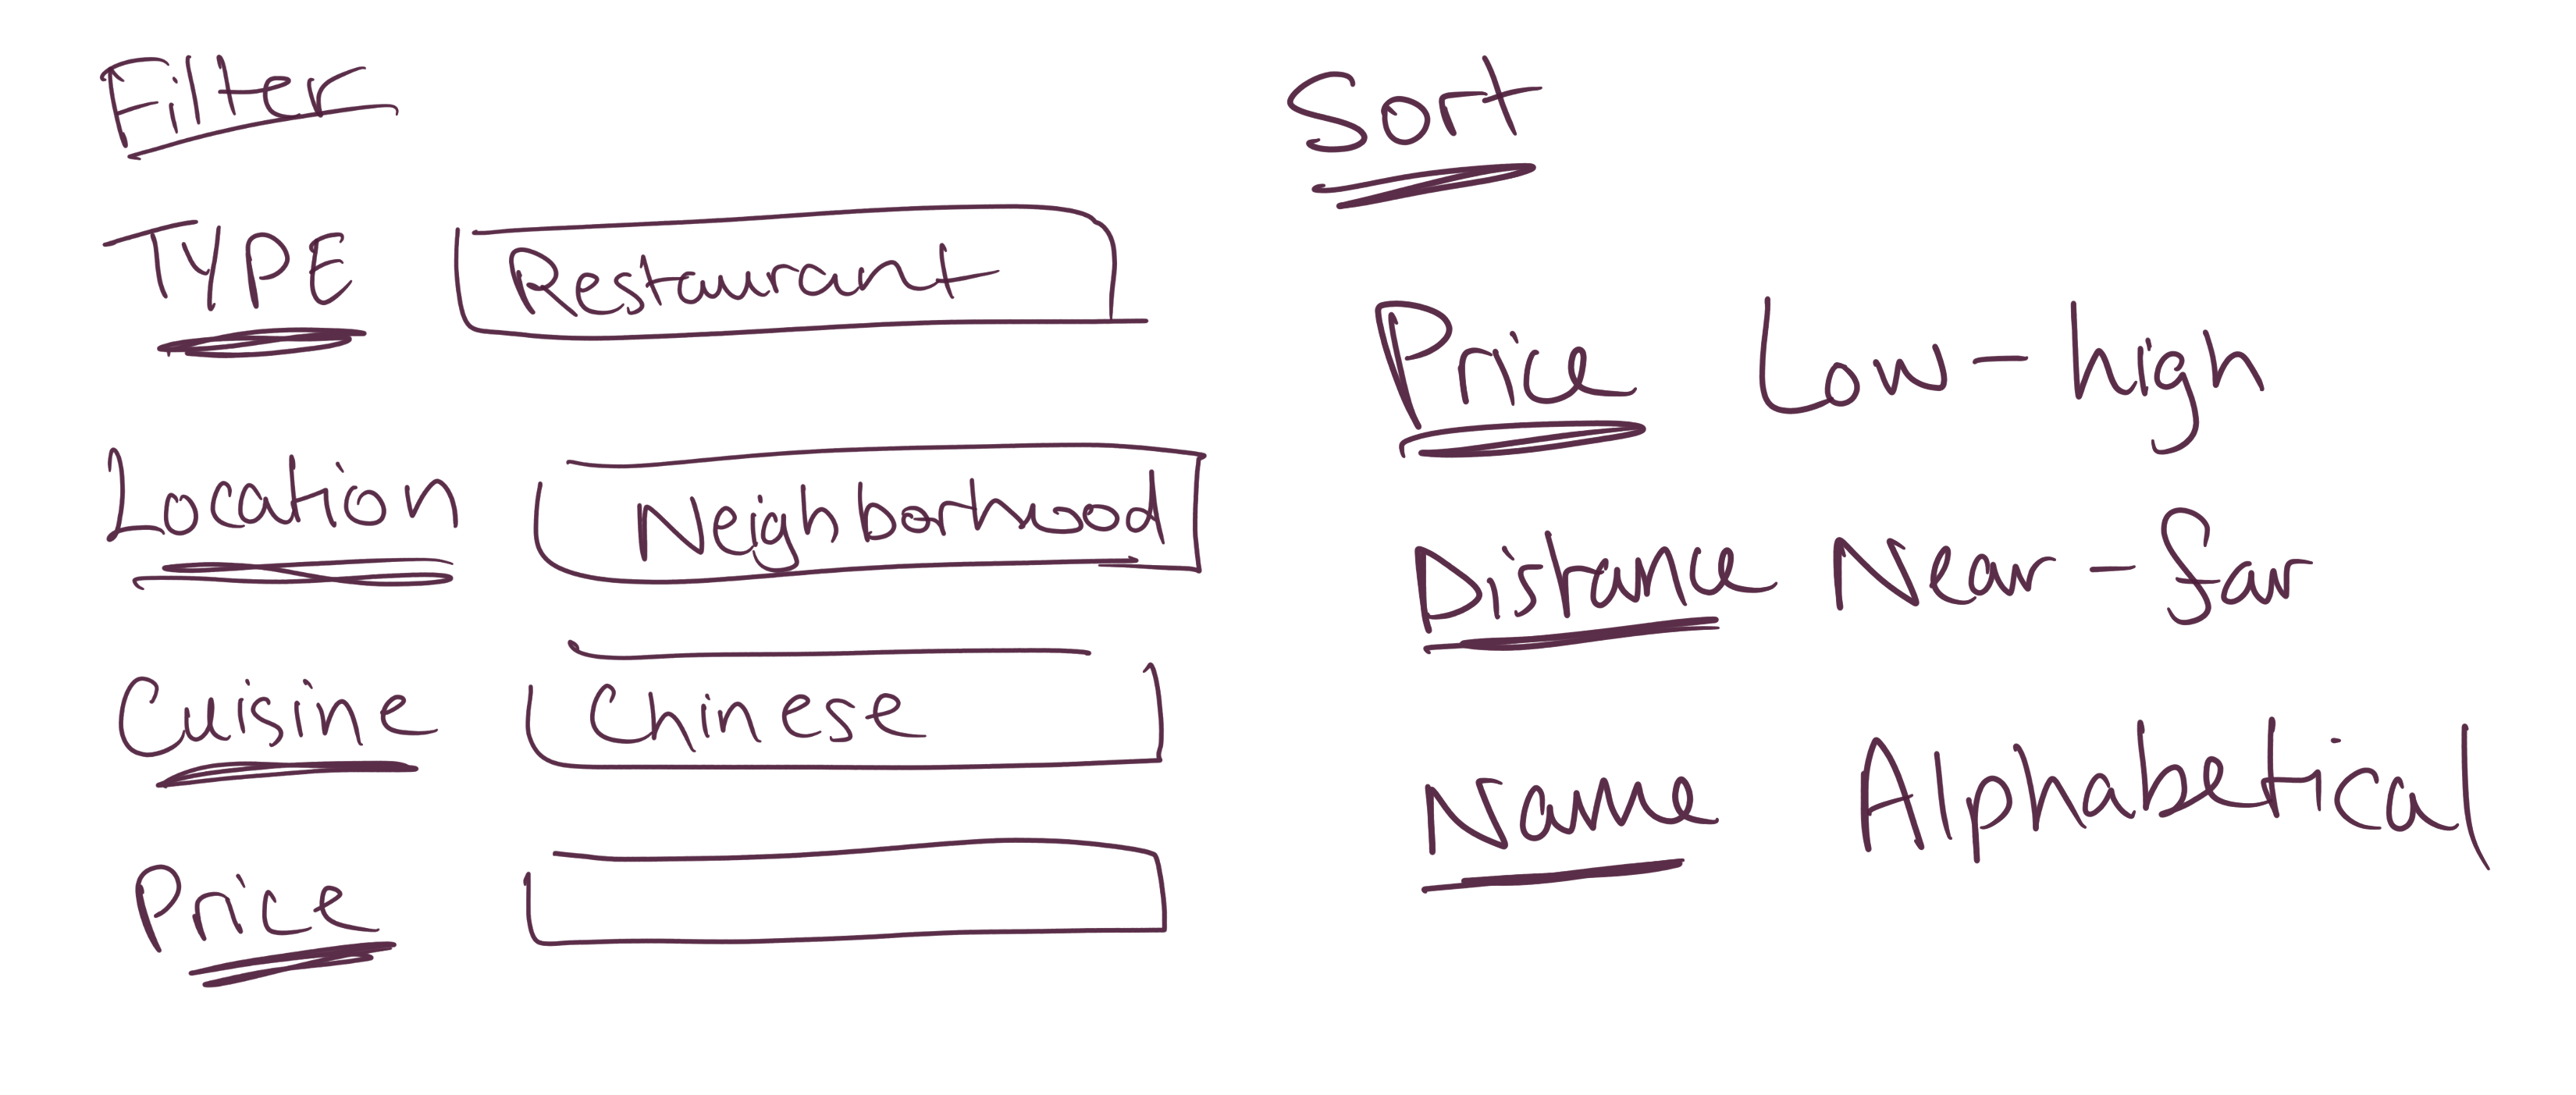 Filter
TYPE Restaurant
Location Neighborhood
Cuisine Chinese
Price
Sort
Price Low - high
Distance Near - far
Name Alphabetical